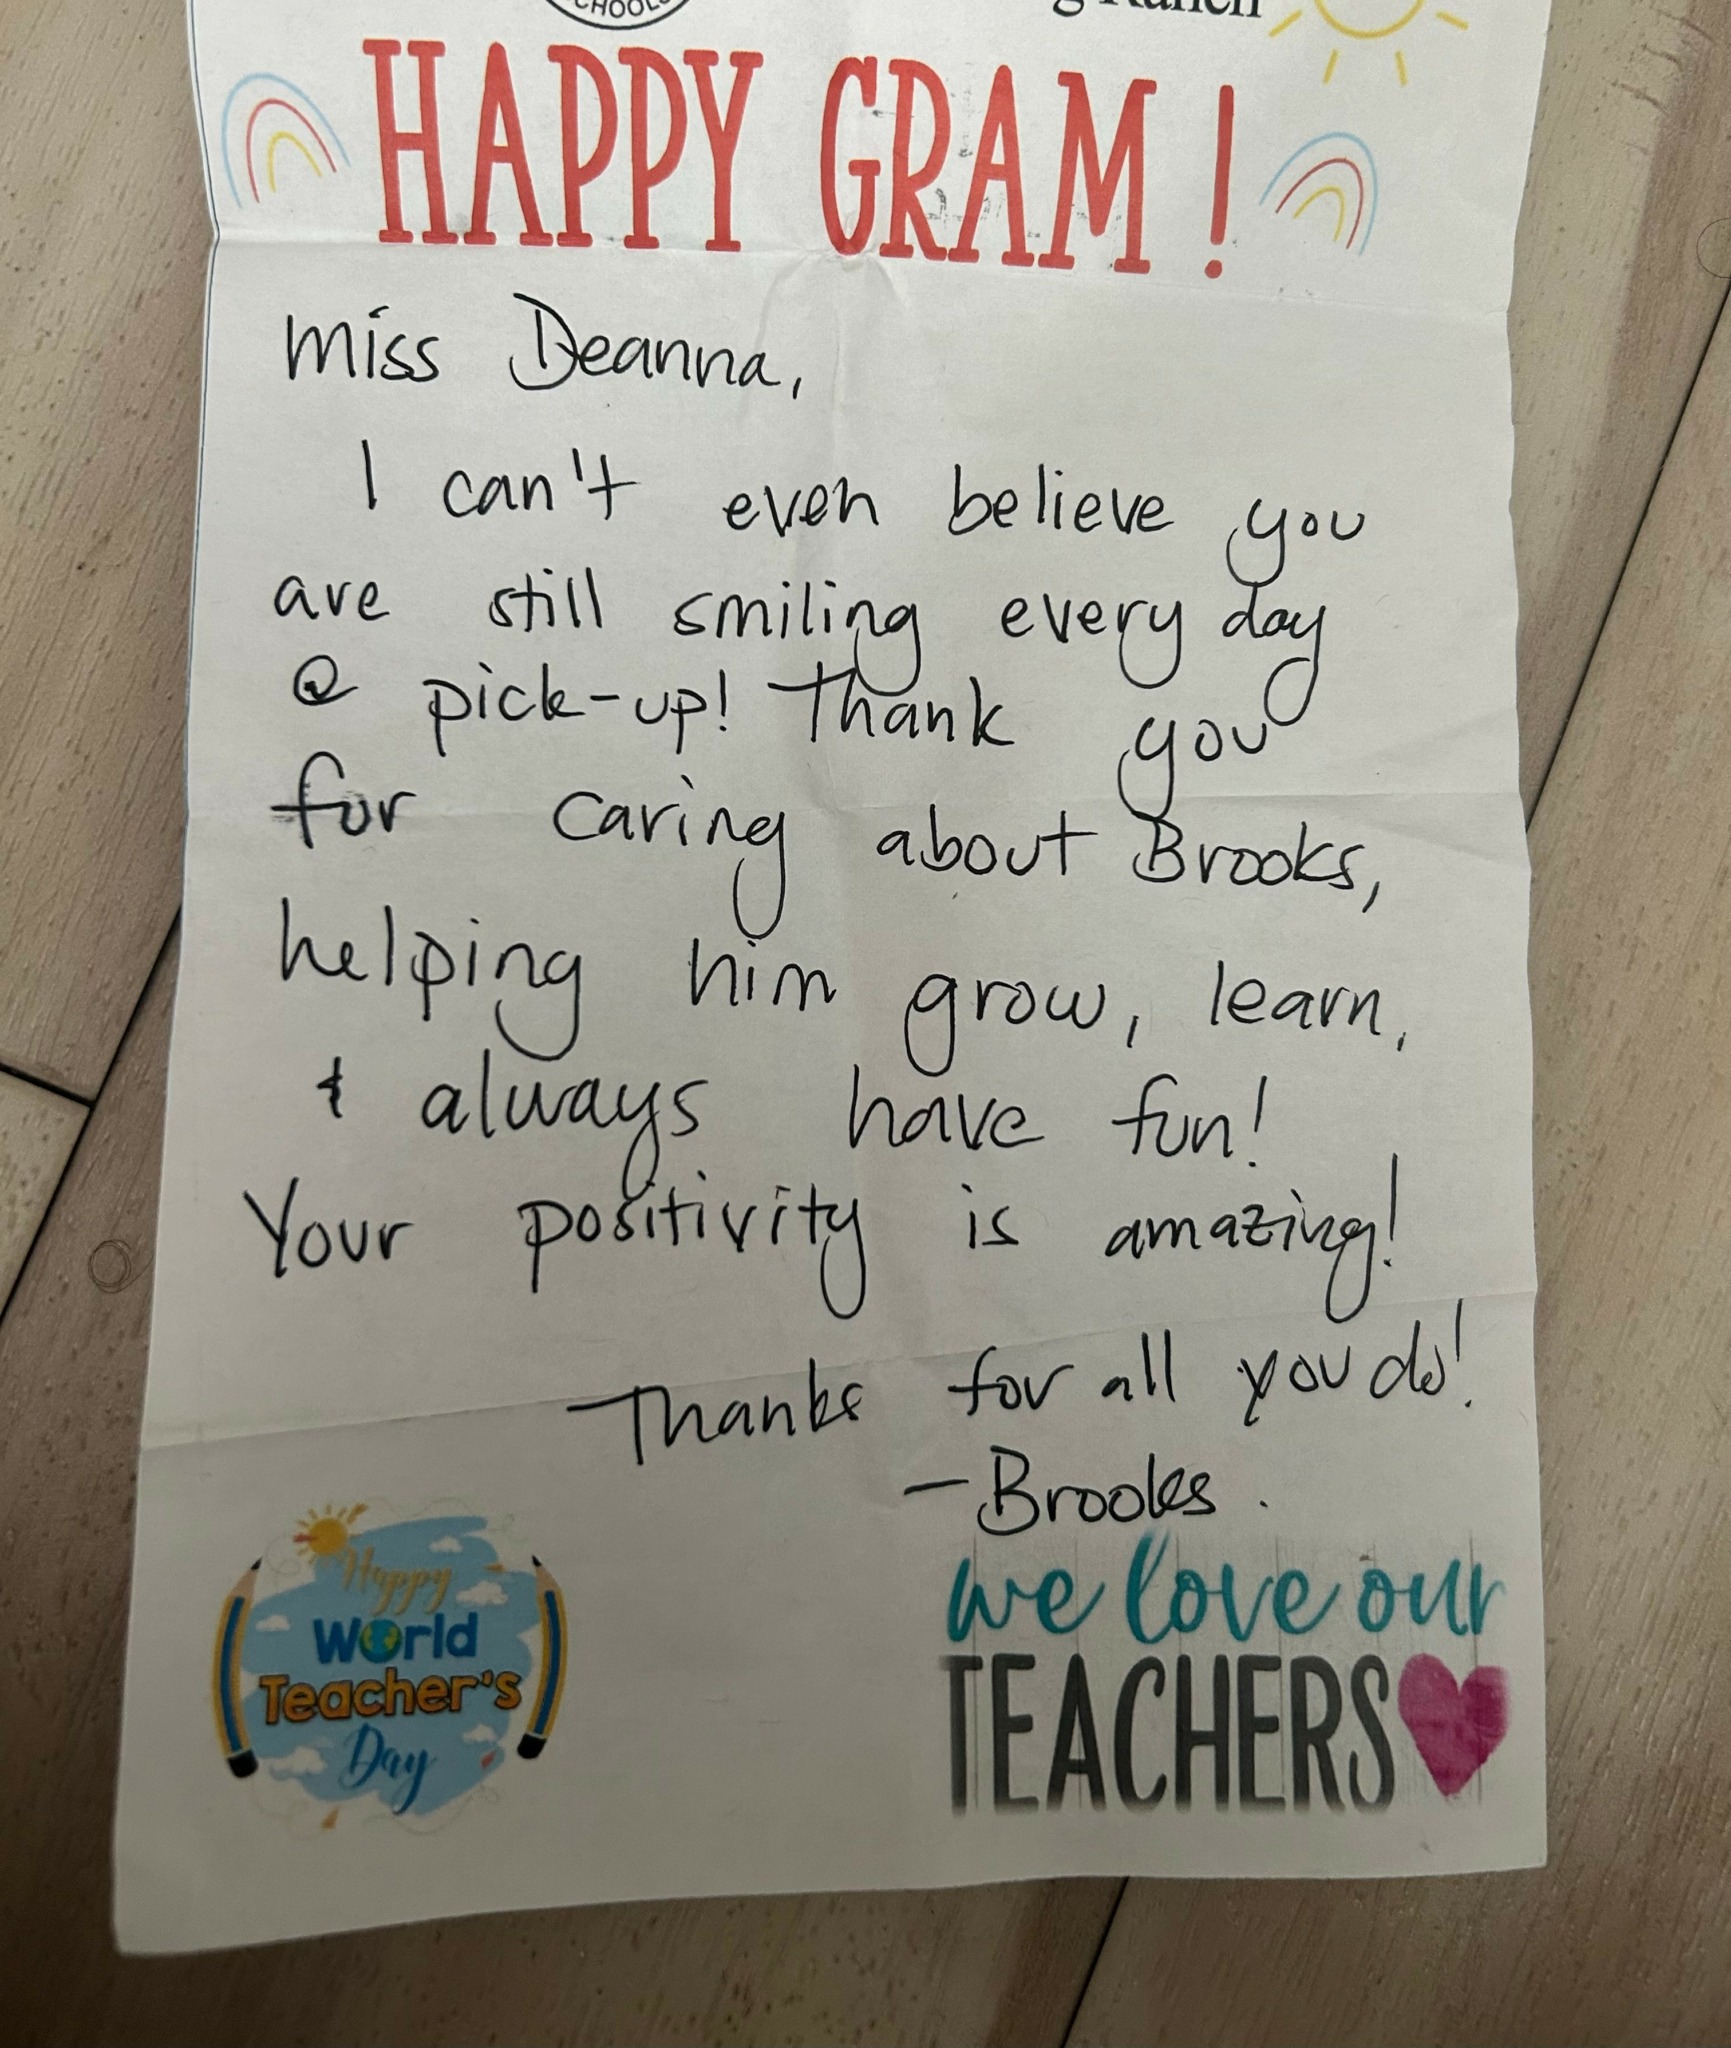 HAPPY GRAM!
Miss Deanna,
I can't even believe you
are still smiling every day
@ pick-up! Thank you
for caring about Brooks,
helping him grow, learn,
& always have fun!
Your positivity is amazing!
Thanks for all you do!
- Brooks.
Happy
World
Teacher's
Day
we love our
TEACHERS